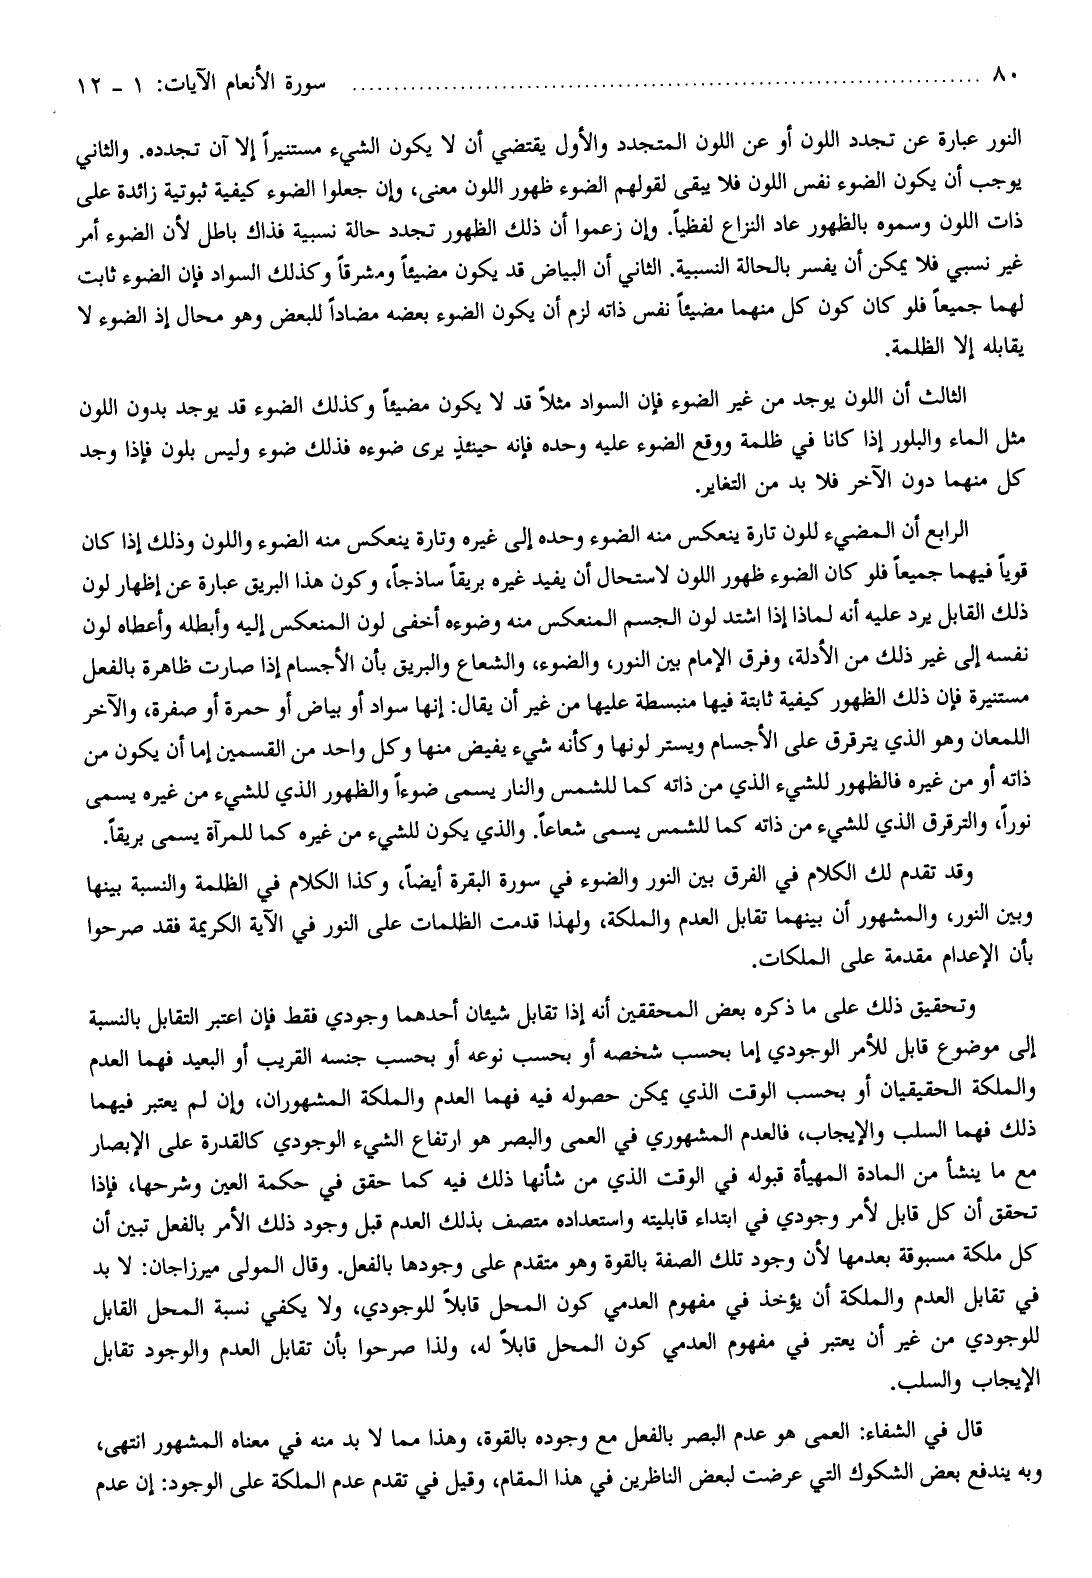 ٨٠ ........................................................ سورة الأنعام الآيات: ١ - ١٢
النور عبارة عن تجدد اللون أو عن اللون المتجدد والأول يقتضي أن لا يكون الشيء مستنيراً إلا آن تجدده. والثاني
يوجب أن يكون الضوء نفس اللون فلا يبقى لقولهم الضوء ظهور اللون معنى، وإن جعلوا الضوء كيفية ثبوتية زائدة على
ذات اللون وسموه بالظهور عاد النزاع لفظياً. وإن زعموا أن ذلك الظهور تجدد حالة نسبية فذاك باطل لأن الضوء أمر
غير نسبي فلا يمكن أن يفسر بالحالة النسبية. الثاني أن البياض قد يكون مضيئاً ومشرقاً وكذلك السواد فإن الضوء ثابت
لهما جميعاً فلو كان كون كل منهما مضيئاً نفس ذاته لزم أن يكون الضوء بعضه مضاداً للبعض وهو محال إذ الضوء لا
يقابله إلا الظلمة.
الثالث أن اللون يوجد من غير الضوء فإن السواد مثلاً قد لا يكون مضيئاً وكذلك الضوء قد يوجد بدون اللون
مثل الماء والبلور إذا كانا في ظلمة ووقع الضوء عليه وحده فإنه حينئذٍ يرى ضوءه فذلك ضوء وليس بلون فإذا وجد
كل منهما دون الآخر فلا بد من التغاير.
الرابع أن المضيء للون تارة ينعكس منه الضوء وحده إلى غيره وتارة ينعكس منه الضوء واللون وذلك إذا كان
قوياً فيهما جميعاً فلو كان الضوء ظهور اللون لاستحال أن يفيد غيره بريقاً ساذجاً، وكون هذا البريق عبارة عن إظهار لون
ذلك القابل يرد عليه أنه لماذا إذا اشتد لون الجسم المنعكس منه وضوءه أخفى لون المنعكس إليه وأبطله وأعطاه لون
نفسه إلى غير ذلك من الأدلة، وفرق الإمام بين النور، والضوء، والشعاع والبريق بأن الأجسام إذا صارت ظاهرة بالفعل
مستنيرة فإن ذلك الظهور كيفية ثابتة فيها منبسطة عليها من غير أن يقال: إنها سواد أو بياض أو حمرة أو صفرة، والآخر
اللمعان وهو الذي يترقرق على الأجسام ويستر لونها وكأنه شيء يفيض منها وكل واحد من القسمين إما أن يكون من
ذاته أو من غيره فالظهور للشيء الذي من ذاته كما للشمس والنار يسمى ضوءاً والظهور الذي للشيء من غيره يسمى
نوراً، والترقرق الذي للشيء من ذاته كما للشمس يسمى شعاعاً. والذي يكون للشيء من غيره كما للمرآة يسمى بريقاً.
وقد تقدم لك الكلام في الفرق بين النور والضوء في سورة البقرة أيضاً، وكذا الكلام في الظلمة والنسبة بينها
وبين النور، والمشهور أن بينهما تقابل العدم والملكة، ولهذا قدمت الظلمات على النور في الآية الكريمة فقد صرحوا
بأن الإعدام مقدمة على الملكات.
وتحقيق ذلك على ما ذكره بعض المحققين أنه إذا تقابل شيئان أحدهما وجودي فقط فإن اعتبر التقابل بالنسبة
إلى موضوع قابل للأمر الوجودي إما بحسب شخصه أو بحسب نوعه أو بحسب جنسه القريب أو البعيد فهما العدم
والملكة الحقيقيان أو بحسب الوقت الذي يمكن حصوله فيه فهما العدم والملكة المشهوران، وإن لم يعتبر فيهما
ذلك فهما السلب والإيجاب، فالعدم المشهوري في العمى والبصر هو ارتفاع الشيء الوجودي كالقدرة على الإبصار
مع ما ينشأ من المادة المهيأة قبوله في الوقت الذي من شأنها ذلك فيه كما حقق في حكمة العين وشرحها، فإذا
تحقق أن كل قابل لأمر وجودي في ابتداء قابليته واستعداده متصف بذلك العدم قبل وجود ذلك الأمر بالفعل تبين أن
كل ملكة مسبوقة بعدمها لأن وجود تلك الصفة بالقوة وهو متقدم على وجودها بالفعل. وقال المولى ميرزاجان: لا بد
في تقابل العدم والملكة أن يؤخذ في مفهوم العدمي كون المحل قابلاً للوجودي، ولا يكفي نسبة المحل القابل
للوجودي من غير أن يعتبر في مفهوم العدمي كون المحل قابلاً له، ولذا صرحوا بأن تقابل العدم والوجود تقابل
الإيجاب والسلب.
قال في الشفاء: العمى هو عدم البصر بالفعل مع وجوده بالقوة، وهذا مما لا بد منه في معناه المشهور انتهى،
وبه يندفع بعض الشكوك التي عرضت لبعض الناظرين في هذا المقام، وقيل في تقدم عدم الملكة على الوجود: إن عدم